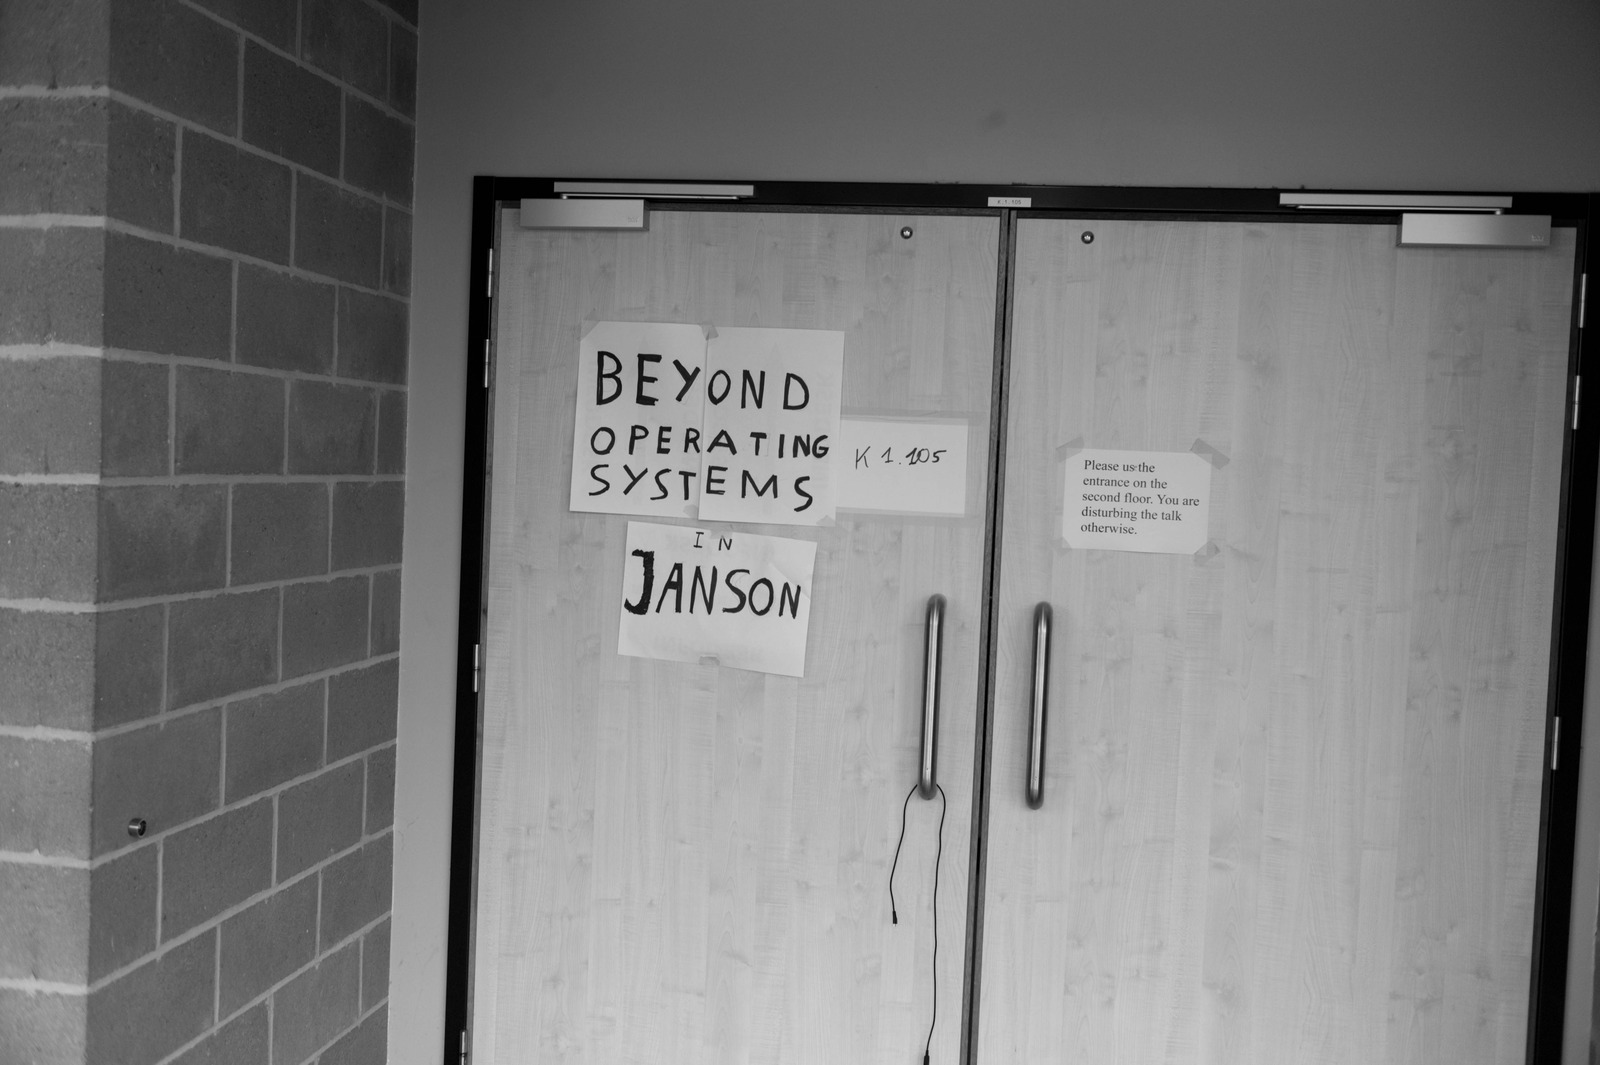 K.1.105
BEYOND
OPERATING
SYSTEMS
K 1.105
IN
JANSON
Please us the
entrance on the
second floor. You are
disturbing the talk
otherwise.